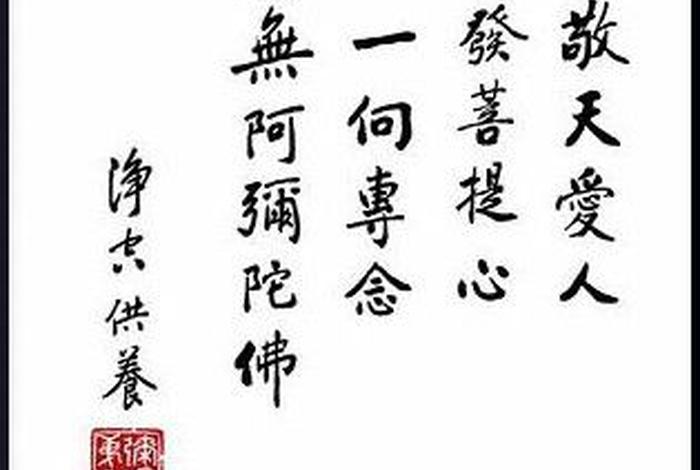 敬天愛人
發菩提心
一向專念
無阿彌陀佛
淨空供養